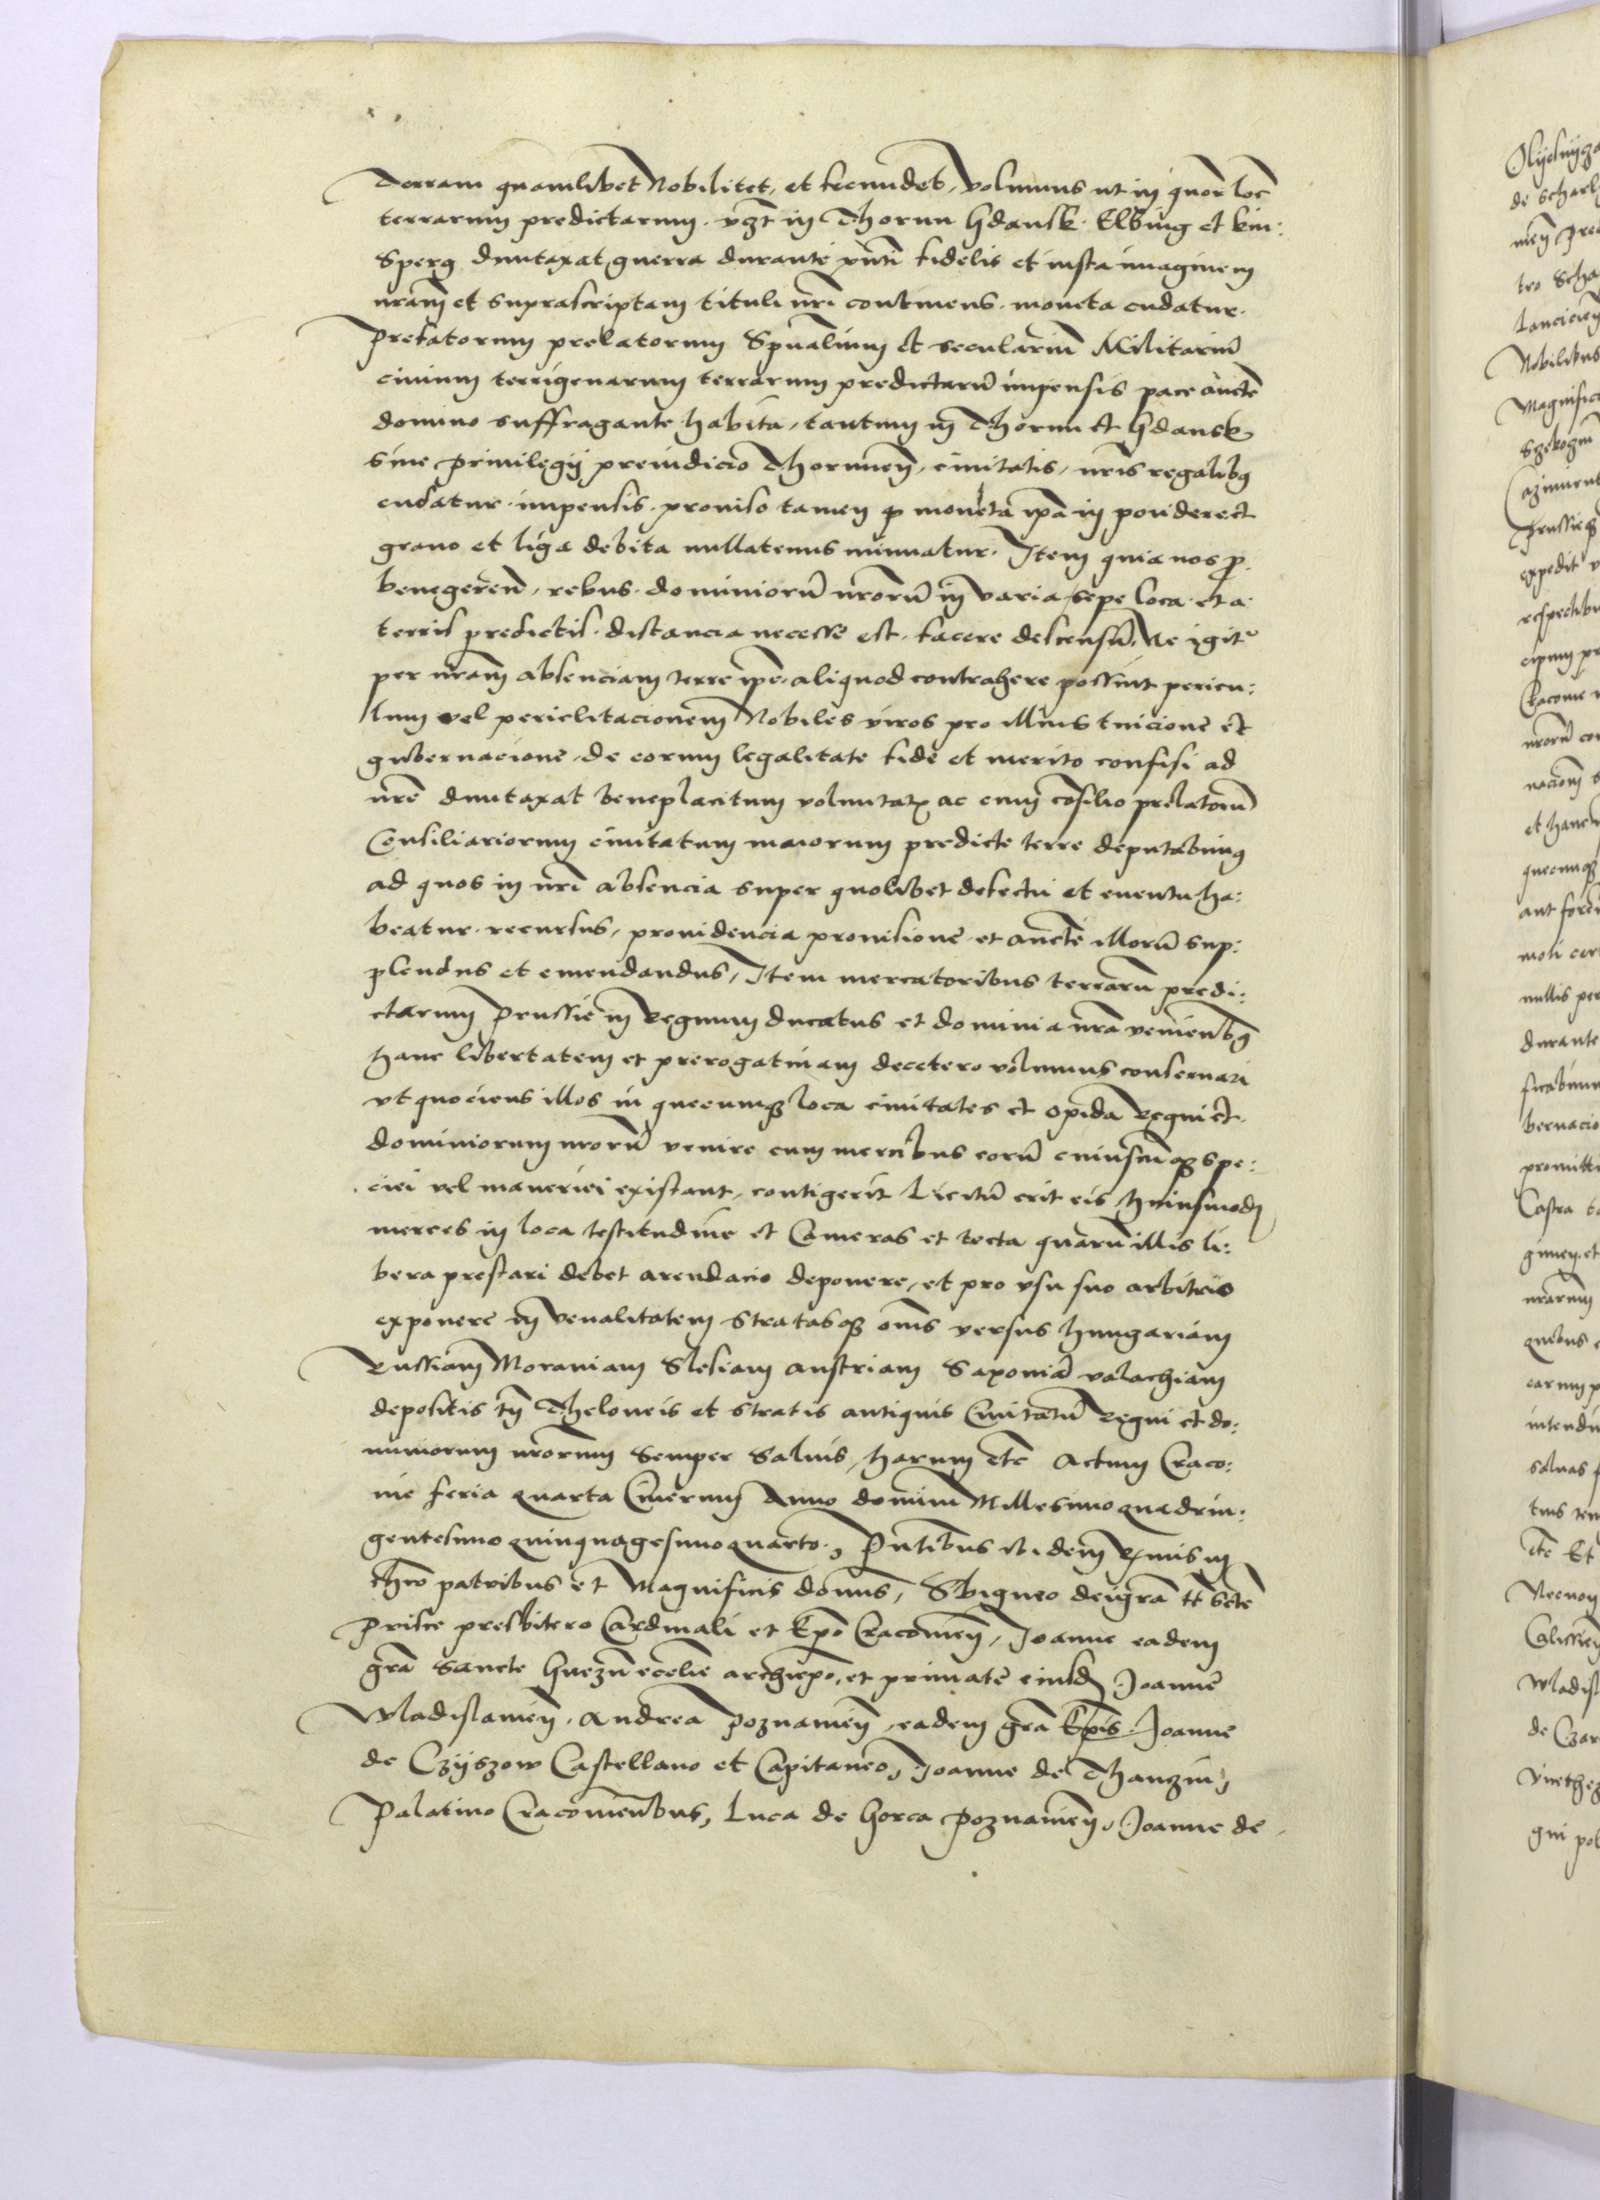 Terram quamlibet Nobilitet, et fecundet, volumus ut in quor loc
terrarum predictarum. vzt in Thorun Gdansk. Elbing et kin:
sperg dumtaxat guerra durante pnti fidelis et iusta imaginem
nram et suprascriptam tituli nri continens. moneta cudatur.
Prefatorum prelatorum Spualium et secularium Militarium
civium terrigenarum terrarum predictaru impensis pace aucte
domino suffragante habita, tantum in Thorun et Gdansk
sine privilegij preiudicio Thorunen, civitatis, nris regalibus
cudatur. impensis. proviso tamen q moneta ipa in pondere et
grano et liga debita nullatenus minuatur. Item quia nos p.
bene geren, rebus. dominioru nroru in varia sepe loca. et a
terris predictis. distancia necesse est. facere descensu. Ne igitr
per nram absenciam terre ipe, aliquod contrahere possint pericu:
lum vel periclitacionem Nobiles viros pro illius tuicione et
gubernacione, de eorum legalitate fide et merito confisi ad
nre dumtaxat beneplacitum voluntatis ac cum cosilio prelatoru
Consiliariorum civitatum maiorum predicte terre deputabimus
ad quos in nri absencia super quolibet defectu et eventu ha:
beatur. recursus, providencia provisione et aucte illoru sup:
plendus et emendandus, Item mercatoribus terraru predi:
ctarum Prussie in Regnum ducatus et dominia nra venientibus
hanc libertatem et prerogativam decetero volumus conservari
vt quociens illos in quecumque loca civitates et opida Regni et
dominiorum nroru venire cum mercibus eoru cuiuscunque spe:
ciei vel maneriei existant, contigerit Licitu erit eis huiusmodi
merces in loca testitudine et Cameras et tecta quaru illis li:
bera prestari debet arendacio deponere, et pro vsu suo arbitrio
exponere in venalitatem stratasque oms versus hungariam
Russiam Moraviam Slesiam austriam Saxonia valachiam
depositis tn Theloneis et stratis antiquis Civitatu Regni et do:
miniorum nrorum Semper Salvis, harum etc Actum Craco:
vie feria quarta Cinerum Anno domini Millesimo quadrin:
gentesimo quinquagesimo quarto, Pntibus ibidem Rmis in
chro patribus et Magnificis domis, Sbigneo dei gra tt scte
Prisce presbitero Cardinali et Epo Cracovien, Joanne eadem
gra Sancte Gnezn ecclie archiepo, et primate eiusd Joanne
Wladislavien, Andrea Poznanien, eadem gra Epis. Joanne
de Czyszow Castellano et Capitaneo, Joanne de Thanzin,
Palatino Cracovienbus, Luca de Gorca Poznanien, Joanne de